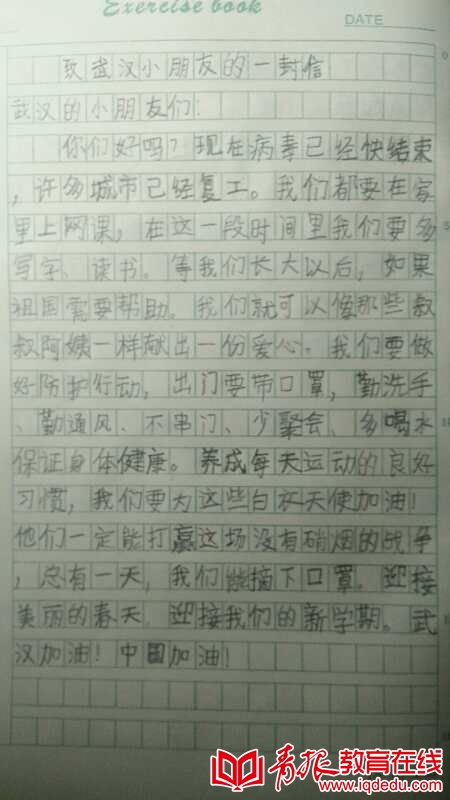 Exercise book
DATE
致武汉小朋友的一封信
武汉的小朋友们:
你们好吗?现在病毒已经快结束
,许多城市已经复工。我们都要在家
里上网课,在这一段时间里我们要多
写字、读书。等我们长大以后,如果
祖国需要帮助。我们就可以像那些叔
叔阿姨一样献出一份爱心。我们要做
好防护行动,出门要带口罩,勤洗手
、勤通风、不串门、少聚会、多喝水
保证身体健康。养成每天运动的良好
习惯,我们要为这些白衣天使加油!
他们一定能打赢这场没有硝烟的战争
,总有一天,我们能摘下口罩。迎接
美丽的春天。迎接我们的新学期。武
汉加油!中国加油!
青报教育在线
www.iqdedu.com